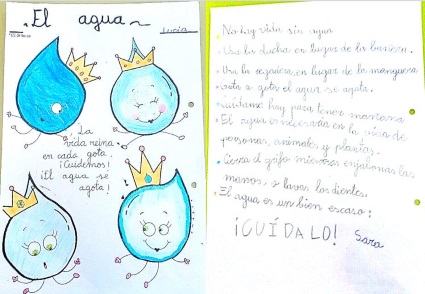 El agua
Lucía
La
vida reina
en cada gota.
¡Cuidemos!
¡El agua se
agota!
No hay vida sin agua
Usa la ducha en lugar de la bañera.
Usa la regadera en lugar de la manguera
Gota a gota el agua se agota.
Cuídame hoy para tener mañana
El agua es necesaria en la vida de
personas, animales y plantas.
Cierra el grifo mientras enjabonas las
manos, o lavas los dientes.
El agua es un bien escaso:
¡CUÍDALO! Sara